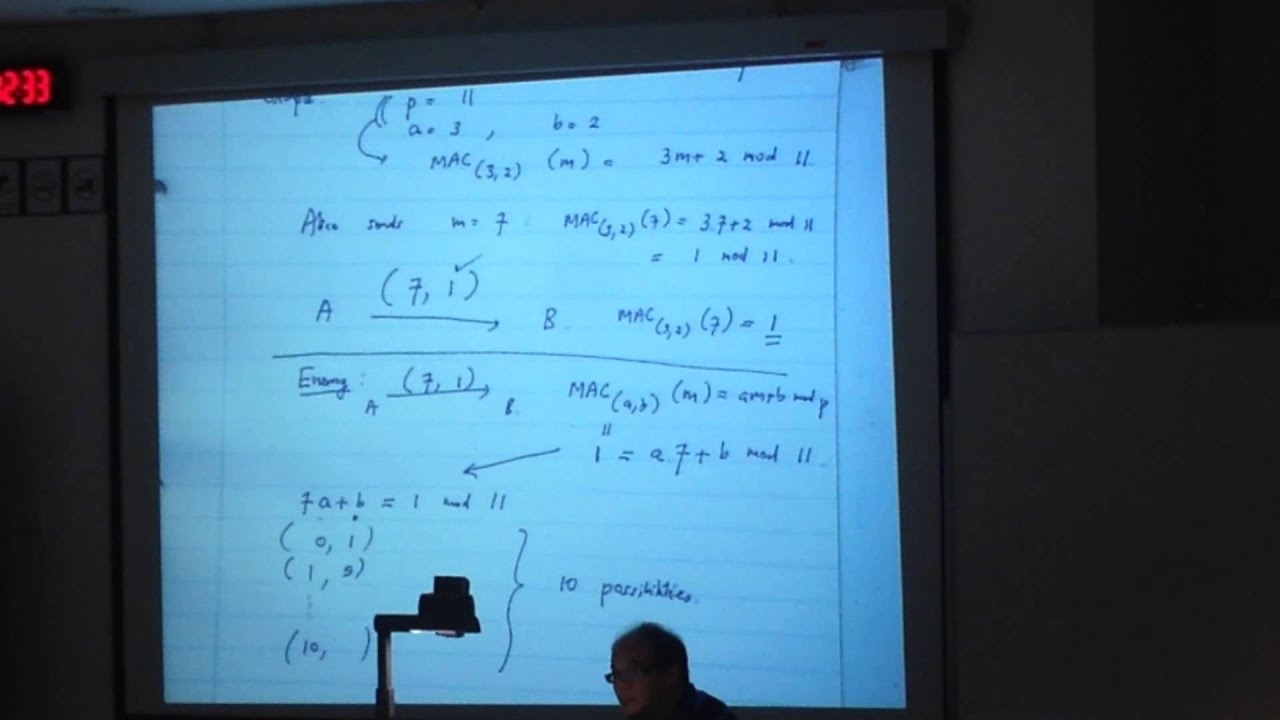 2:33
p = 11
a = 3 , b = 2
MAC(3,2) (m) = 3m + 2 mod 11
Alice sends m = 7 : MAC(3,2) (7) = 3.7+2 mod 11
= 1 mod 11.
(7, 1) ✓
A → B MAC(3,2) (7) = 1
Enemy : A (7, 1) → B. MAC(a,b) (m) = am+b mod p
1 = a.7 + b mod 11.
7a+b = 1 mod 11
( 0, 1 )
( 1, 5 )
⋮
( 10, )
} 10 possibilities.